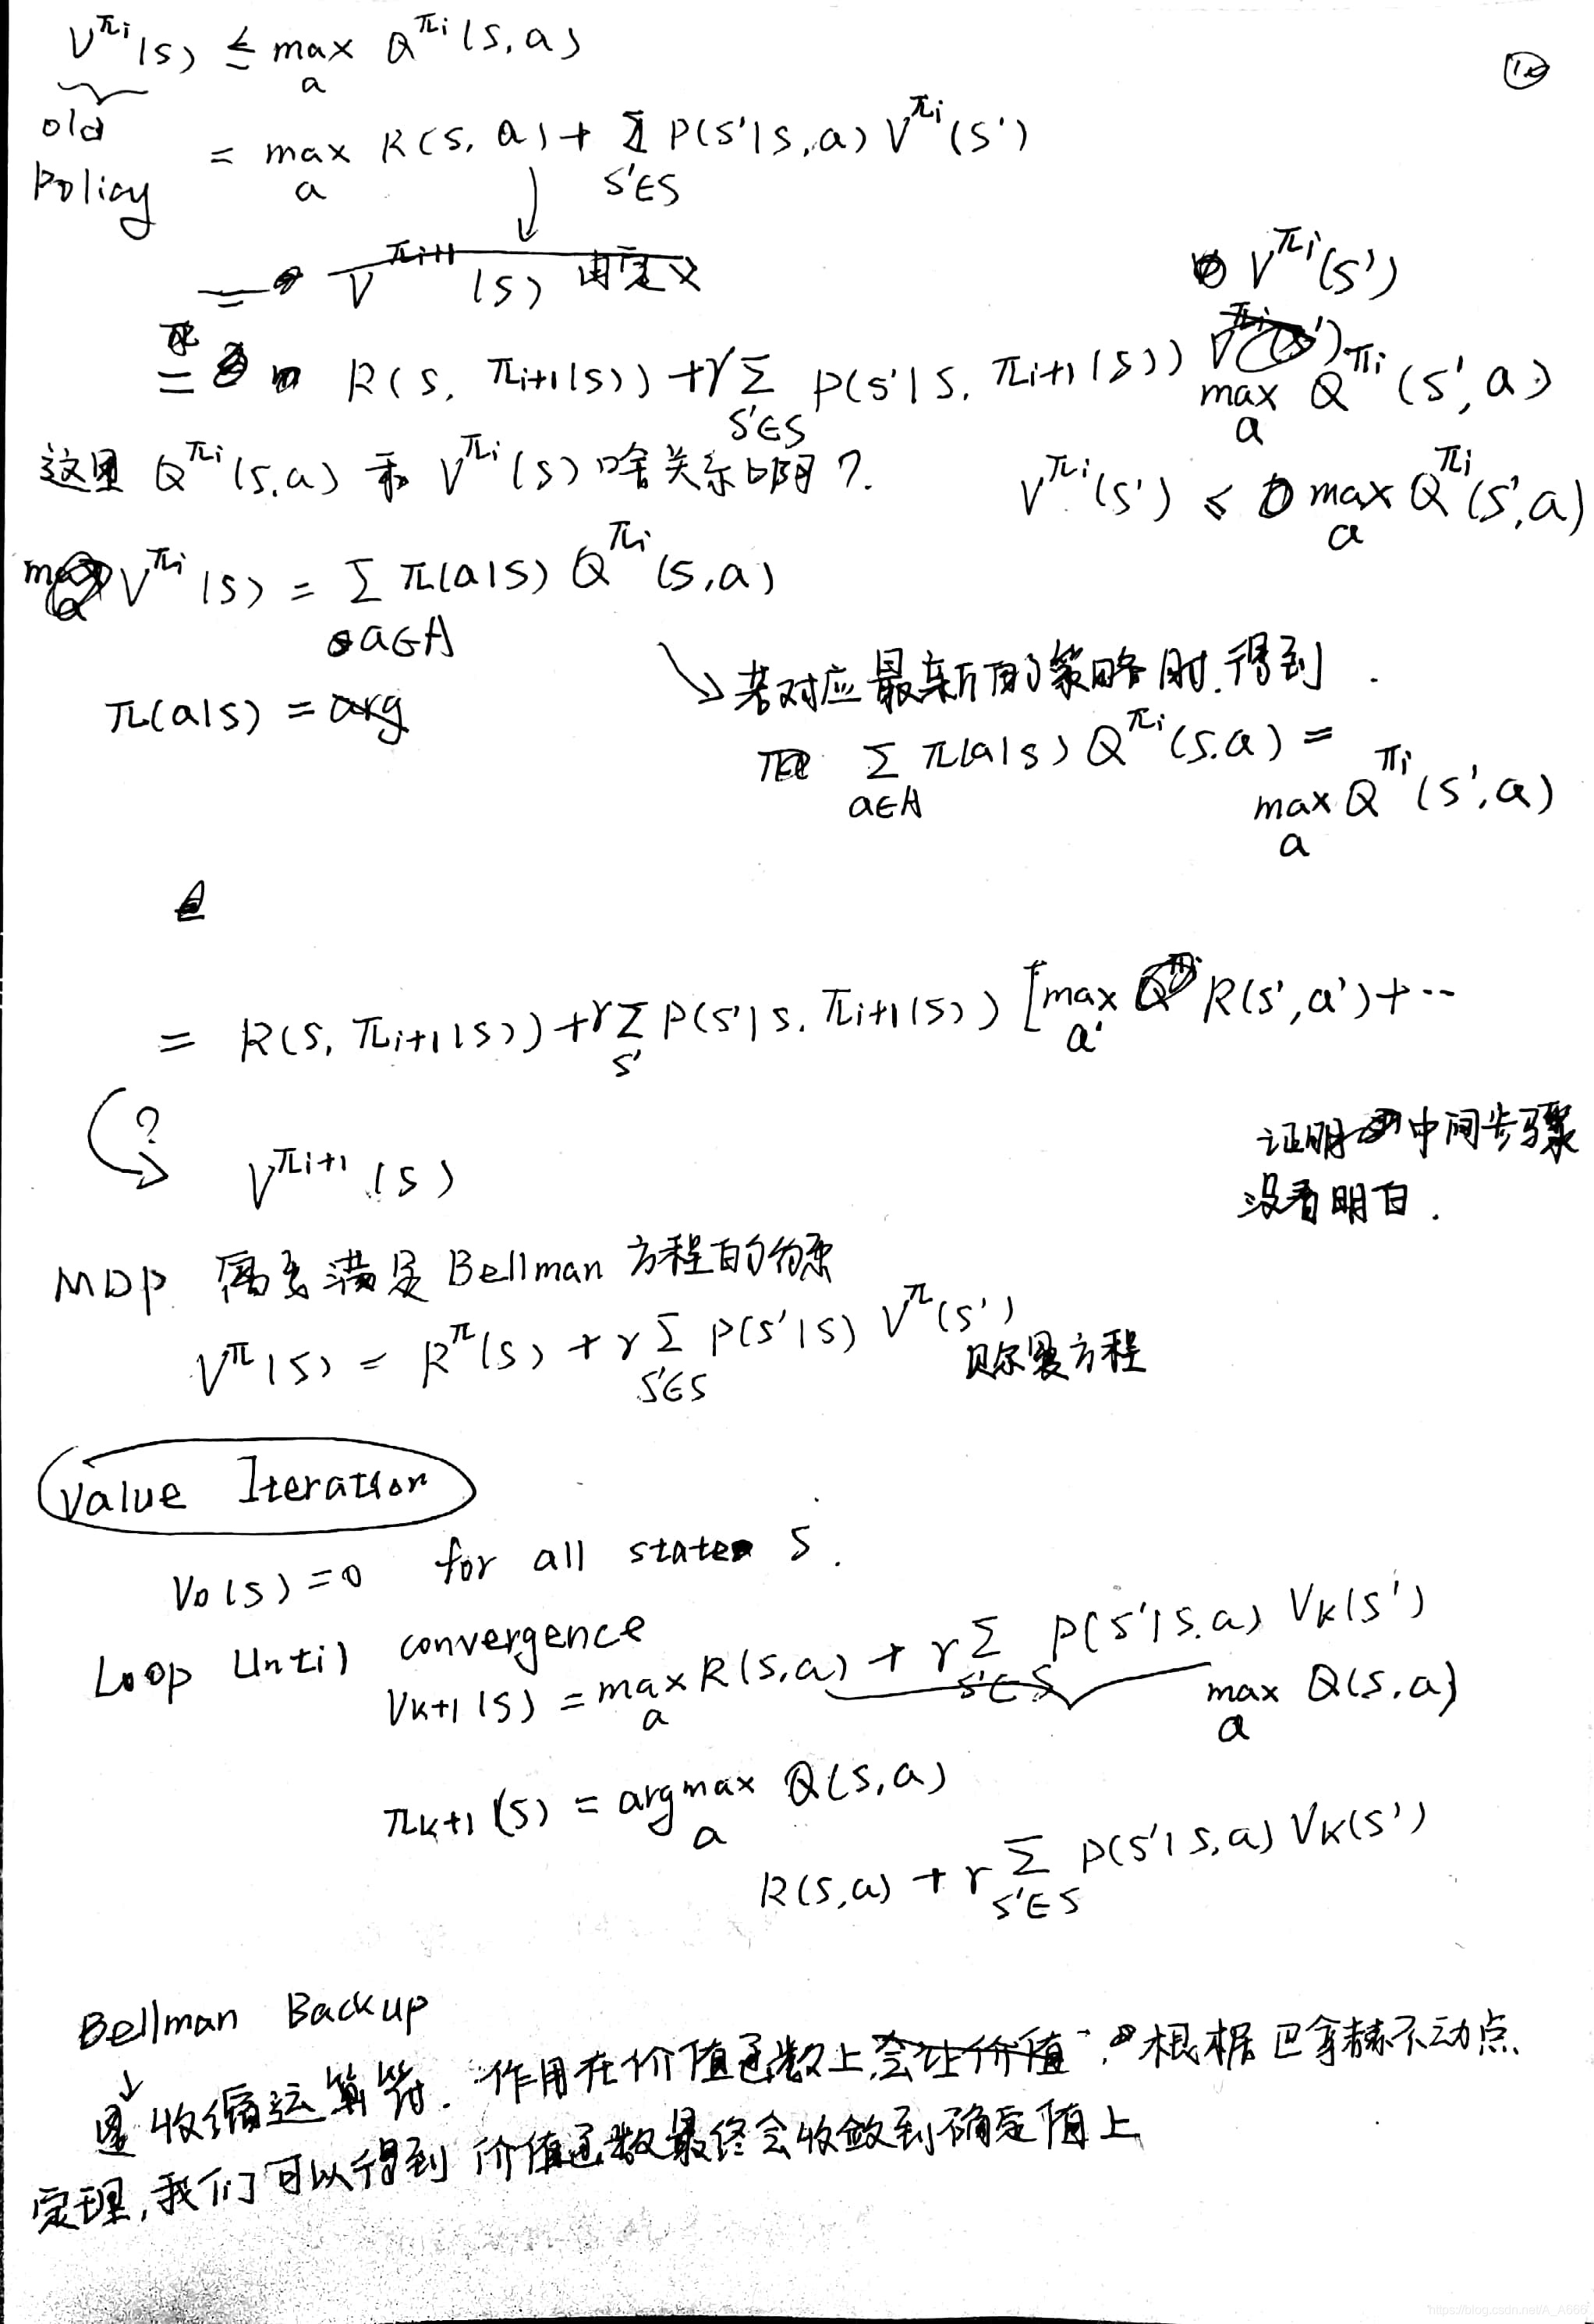 ⑩
V^{πi}(s) ≤ max_a Q^{πi}(s,a)
old policy
= max_a R(s,a) + Σ_{s'∈S} P(s'|s,a) V^{πi}(s')
= V^{πi+1}(s) 由定义
V^{πi}(s')
= R(s, πi+1(s)) + γ Σ_{s'∈S} P(s'|s, πi+1(s)) max_a Q^{πi}(s',a)
这里 Q^{πi}(s,a) 和 V^{πi}(s) 啥关系啊?
V^{πi}(s') ≤ max_a Q^{πi}(s',a)
V^{πi}(s) = Σ_{a∈A} π(a|s) Q^{πi}(s,a)
↘ 若对应最新的策略时.得到.
π(a|s) = arg
Σ_{a∈A} π(a|s) Q^{πi}(s,a) =
max_a Q^{πi}(s',a)
= R(s, πi+1(s)) + γ Σ_{s'} P(s'|s, πi+1(s)) [max_{a'} R(s',a') + ···
?
V^{πi+1}(s)
证明中间步骤
没看明白.
MDP 需要满足 Bellman 方程的约束
V^π(s) = R^π(s) + γ Σ_{s'∈S} P(s'|s) V^π(s')
贝尔曼方程
Value Iteration
V0(s)=0 for all state s.
Loop Until convergence
Vk+1(s) = max_a R(s,a) + γ Σ_{s'∈S} P(s'|s,a) Vk(s')
max_a Q(s,a)
πk+1(s) = argmax_a Q(s,a)
R(s,a) + γ Σ_{s'∈S} P(s'|s,a) Vk(s')
Bellman Backup
↓
是收缩运算符. 作用在价值函数上会让价值, 根据巴拿赫不动点
定理,我们可以得到价值函数最终会收敛到确定值上